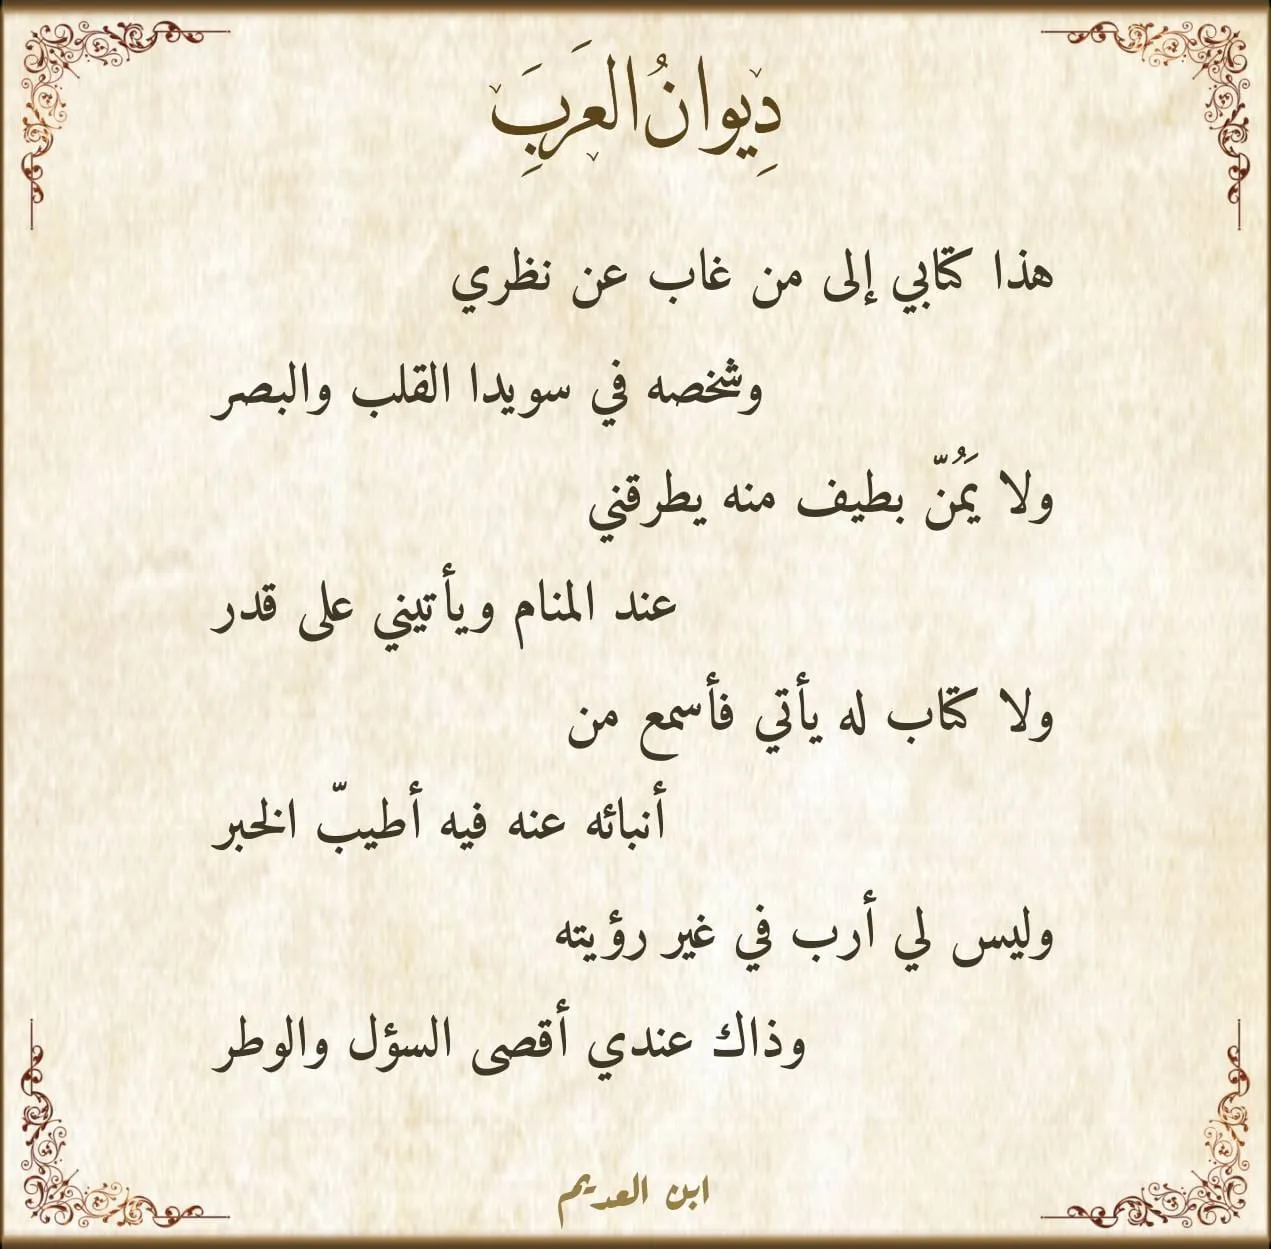 دِيوانُ العَرَبِ
هذا كتابي إلى من غاب عن نظري
وشخصه في سويدا القلب والبصر
ولا يَمُنّ بطيف منه يطرقني
عند المنام ويأتيني على قدر
ولا كتاب له يأتي فأسمع من
أنبائه عنه فيه أطيبّ الخبر
وليس لي أرب في غير رؤيته
وذاك عندي أقصى السؤل والوطر
ابن العديم